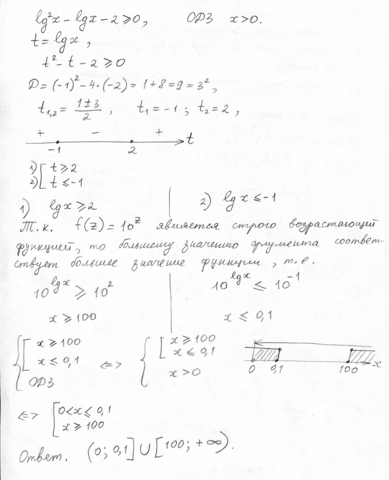 lg²x - lgx - 2 ⩾ 0, ОДЗ x > 0.
t = lgx,
t² - t - 2 ⩾ 0
D = (-1)² - 4·(-2) = 1 + 8 = 9 = 3²,
t₁,₂ = (1±3)/2, t₁ = -1; t₂ = 2,
+ - +
-1 2 t
1) [ t ⩾ 2
2) [ t ⩽ -1
1) lgx ⩾ 2 2) lgx ⩽ -1
Т.к. f(z) = 10^z является строго возрастающей
функцией, то большему значению аргумента соответ-
ствует большее значение функции, т.е.
10^lgx ⩾ 10² 10^lgx ⩽ 10^-1
x ⩾ 100 x ⩽ 0,1
{ [ x ⩾ 100 <=> { [ x ⩾ 100
x ⩽ 0,1 x ⩽ 0,1
ОДЗ x > 0
0 0,1 100 x
<=> [ 0 < x ⩽ 0,1
x ⩾ 100
Ответ. (0; 0,1] ∪ [100; +∞).